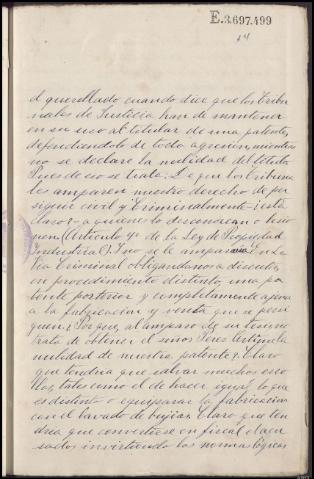 E.3.697.499
14
el querellado cuando dice que los Tribu
nales de Justicia han de mantener
en su uso al titular de una patente,
defendiendolo de toda agresion, mientras
no se declare la nulidad del título
Pues de eso se trata: De que los Tribuna
les amparen nuestro derecho de per
seguir civil y Criminalmente - ¿está
claro? - a quienes lo desconozcan o lesio
nen. (Artículo 4º de la Ley de Propiedad
Industrial). Y no se le ampararía en la
vía Criminal obligandonos a discutir,
en procedimiento distinto, una pa
tente posterior y completamente ajena
a la fabricacion y venta que se persi
guen; Porque, al amparo de su
trata de obtener el señor Peres Sertigula la
nulidad de nuestra patente? Claro
que tendria que salvar muchos esco
llos, tales como el de hacer igual lo que
es distinto o equiparar la fabricacion
con el lavado de bujias. Claro que ten
dria que convertirse en fiscal el acu
sado, invirtiendo las normas lógicas